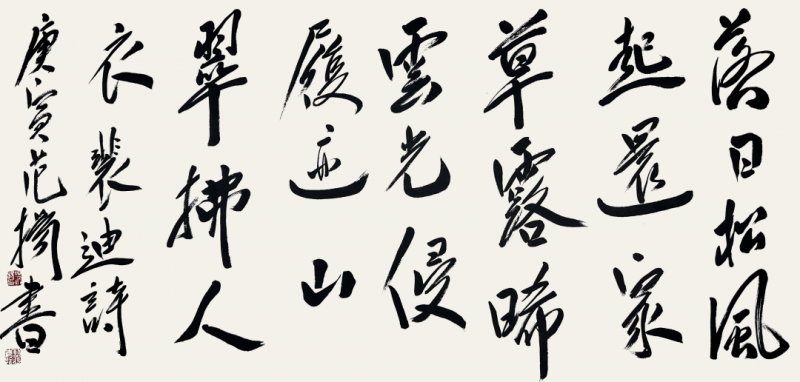 落日松風
起還家
草露晞
雲光侵
履迹山
翠拂人
衣裴迪詩
庚寅范撝書